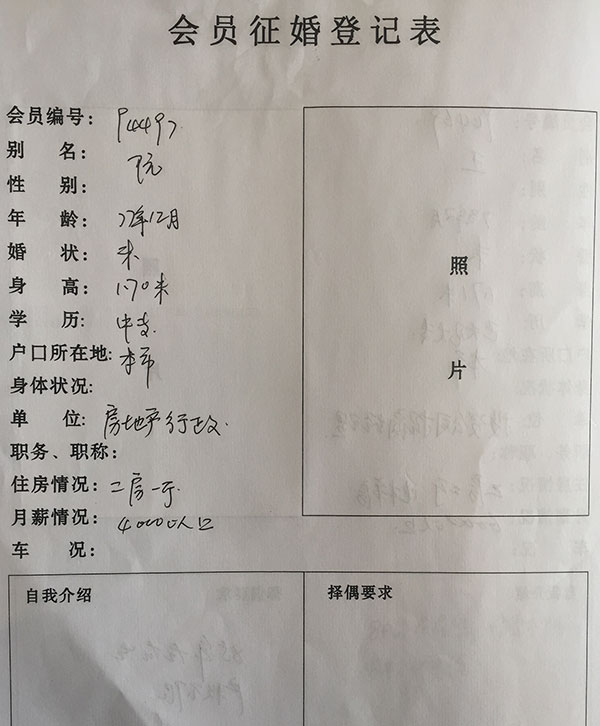 会员征婚登记表
会员编号: P4497
别 名:
性 别:
年 龄: 77年12月
婚 状: 未
身 高: 1.70米
学 历: 中专
户口所在地: 本市
身体状况:
单 位: 房地产行政.
职务、职称:
住房情况: 二房一厅
月薪情况: 4000以上
车 况:
照
片
自我介绍
择偶要求